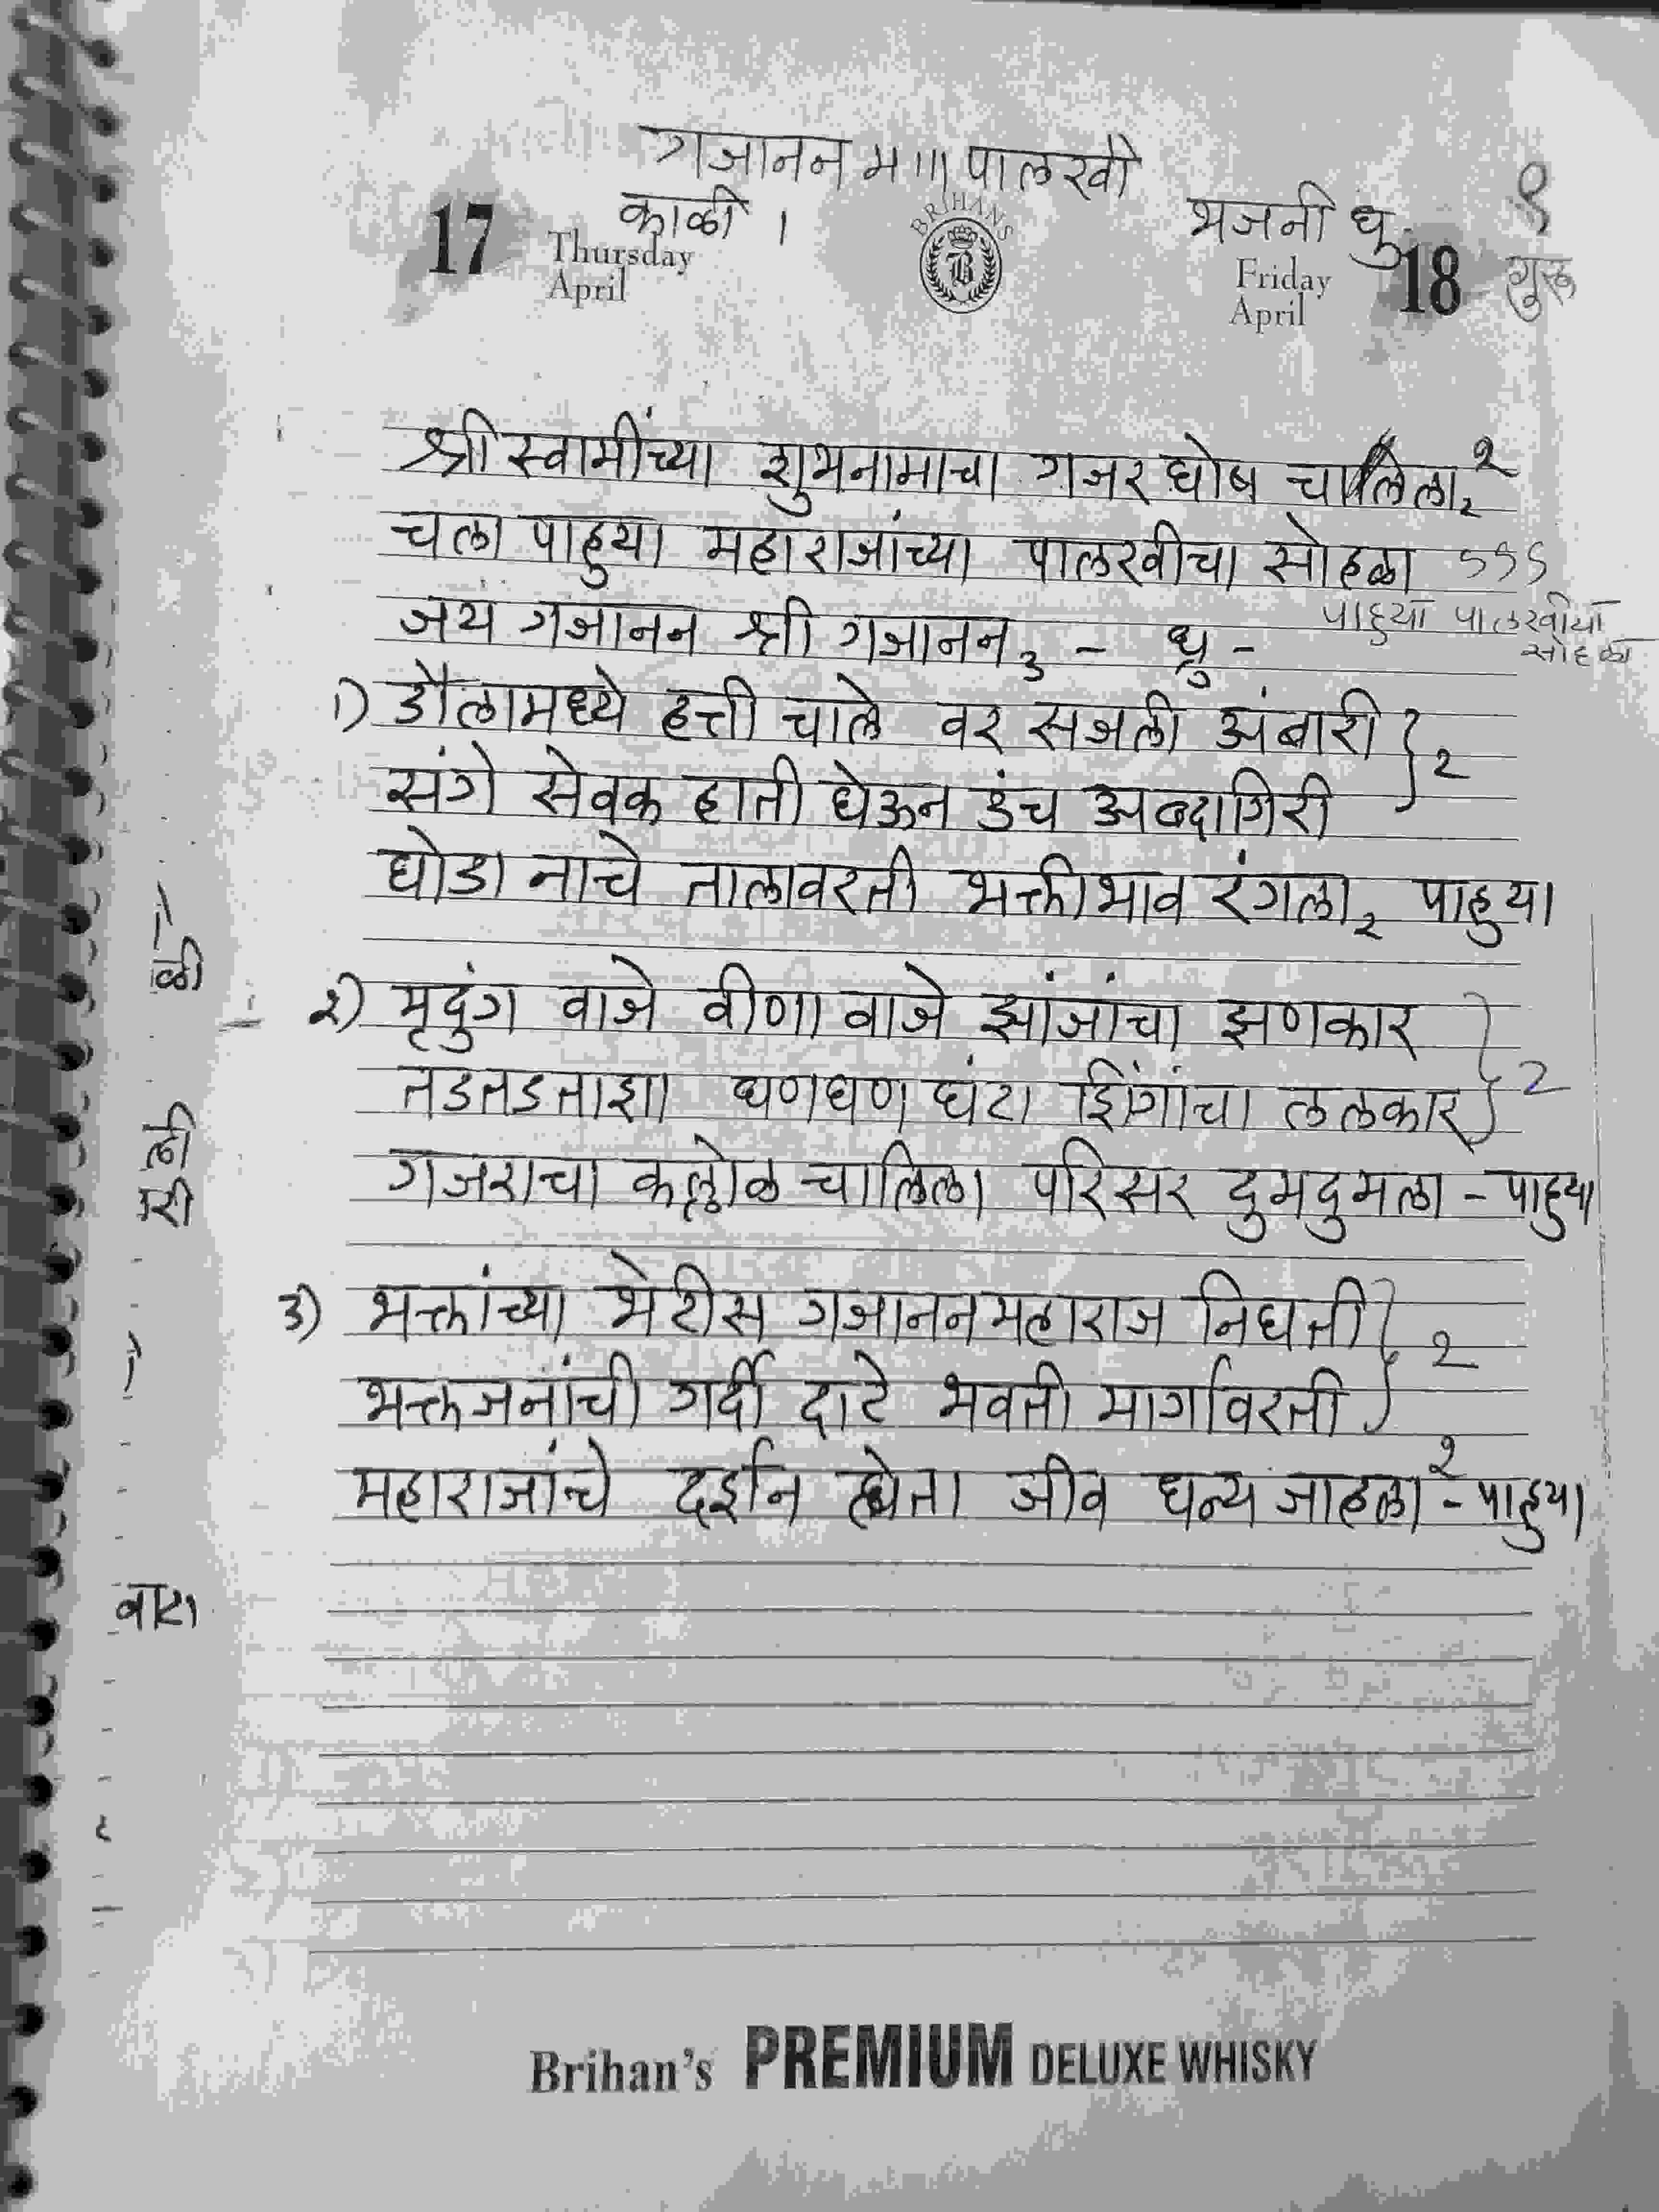 गजानन म॥ पालखी
काळी १
भजनी ध्रु
१
गुरु
17 Thursday April
BRIHANS
B
Friday April 18
श्री स्वामींच्या शुभनामाचा गजर घोष चालिला२ २
चला पाहुया महाराजांच्या पालखीचा सोहळा ऽऽऽ
पाहुया पालखीचा सोहळा
जय गजानन श्री गजानन३ - ध्रु -
१) डौलामध्ये हत्ती चाले वर सजली अंबारी } २
संगे सेवक हाती घेऊन उंच अब्दागिरी
घोडा नाचे तालावरती भक्तीभाव रंगला२ पाहुया
२) मृदुंग वाजे वीणा वाजे झांजांचा झणकार } 2
तडतडताशा घणघण घंटा शिंगांचा ललकार
गजराचा कल्लोळ चालिला परिसर दुमदुमला - पाहुया
३) भक्तांच्या भेटीस गजाननमहाराज निघती } २
भक्तजनांची गर्दी दाटे भवती मार्गावरती
महाराजांचे दर्शन होता जीव धन्य जाहला२ - पाहुया
ळी
ली
री
वाटा
Brihan's PREMIUM DELUXE WHISKY